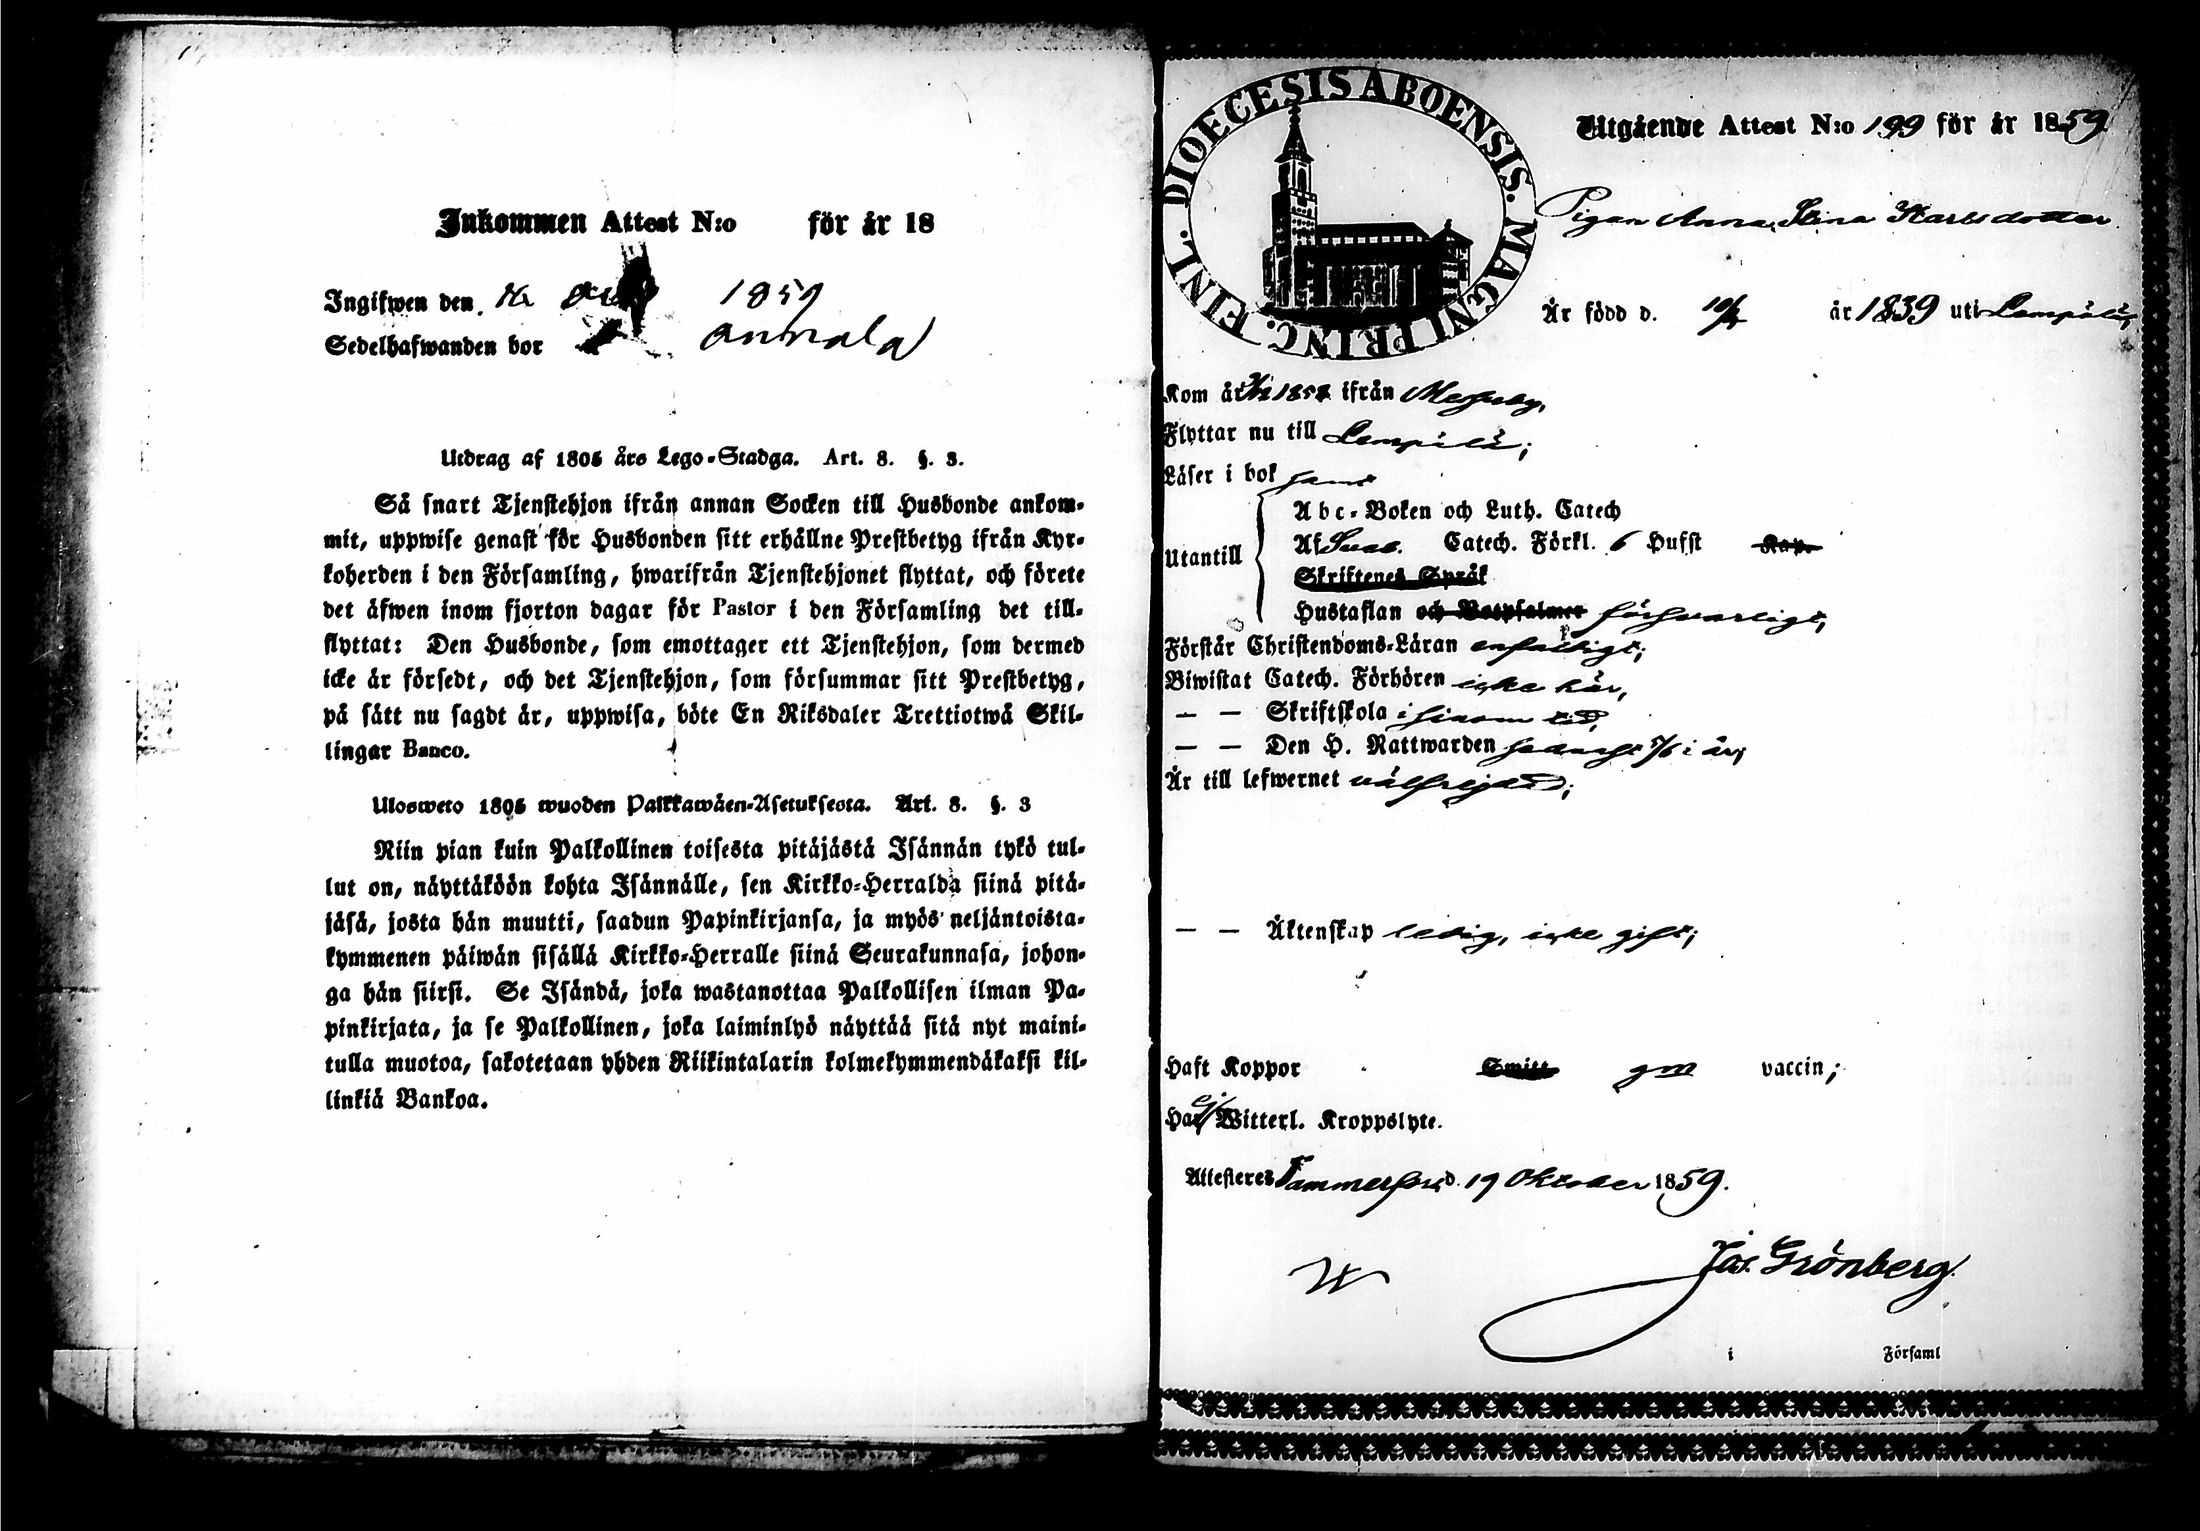 Inkommen Attest N:o för år 18
Ingifwen den 1859
Sedelhafwanden bor Annala
Utdrag af 1805 års Lego-Stadga. Art. 8. §. 3.
Så snart Tjenstehjon ifrån annan Socken till Husbonde ankom-
mit, uppwise genast för Husbonden sitt erhållne Prestbetyg ifrån Kyr-
koherden i den Församling, hwarifrån Tjenstehjonet flyttat, och förete
det äfwen inom fjorton dagar för Pastor i den Församling det till-
flyttat: Den Husbonde, som emottager ett Tjenstehjon, som dermed
icke är försedt, och det Tjenstehjon, som försummar sitt Prestbetyg,
på sätt nu sagdt är, uppwisa, böte En Riksdaler Trettiotwå Skil-
lingar Banco.
Ulosweto 1805 wuoden Palkkawäen-Asetuksesta. Art. 8. §. 3
Niin pian kuin Palkollinen toisesta pitäjästä Isännän tykö tul-
lut on, näyttäköön kohta Isännälle, sen Kirkko-Herralda siinä pitä-
jäsä, josta hän muutti, saadun Papinkirjansa, ja myös neljäntoista-
kymmenen päiwän sisällä Kirkko-Herralle siinä Seurakunnasa, johon-
ga hän siirsi. Se Isändä, joka wastanottaa Palkollisen ilman Pa-
pinkirjata, ja se Palkollinen, joka laiminlyö näyttää sitä nyt maini-
tulla muotoa, sakotetaan yhden Riikintalarin kolmekymmendäkaksi kil-
linkiä Bankoa.
DIOECESIS ABOENSIS. MAGNI PRINC. FINL.
Utgående Attest N:o 199 för år 1859
Pigan Anna Stina Karlsdotter
Är född d. år 1839 uti Lempälä,
Kom år 1858 ifrån Messuby,
Flyttar nu till Lempälä;
Läser i bok
Utantill
Abc-Boken och Luth. Catech
Af Sveb. Catech. Förkl. 6 Hufst Kap.
Skriftenes Språk
Hustaflan och Botpsalmer försvarligt,
Förstår Christendoms-Läran enfaldigt;
Biwistat Catech. Förhören icke här,
— — Skriftskola i sinom tid,
— — Den H. Nattwarden senast 5/6 i år;
Är till lefwernet välfrejdad;
— — Äktenskap ledig, icke gift;
Haft Koppor Smitt gm vaccin;
Har ej Witterl. Kroppslyte.
Attesteres Tammerfors d. 19 Oktober 1859.
Jos. Grönberg.
i Församl